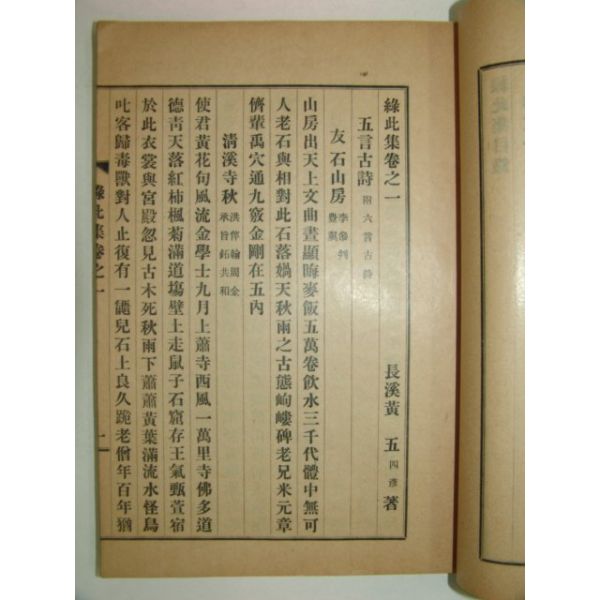 綠此集卷之一
長溪黃 五 四彥 著
五言古詩 附六言古詩
友石山房 李參判豊翼
山房出天上文曲晝顯晦麥飯五萬卷飮水三千代體中無可
人老石與相對此石落媧天秋雨之古態岣嶁碑老兄米元章
儕輩禹穴通九竅金剛在五內
淸溪寺秋 洪侔翰周金承旨鉐共和
使君黃花句風流金學士九月上蕭寺西風一萬里寺佛多道
德靑天落紅柿楓菊滿道塲壁上走鼠子石窟存王氣甄萱宿
於此衣裳與宮殿忽見古木死秋雨下蕭蕭黃葉滿流水怪鳥
叱客歸毒獸對人止復有一龝兒石上良久跪老僧年百年猶
綠此集卷之一
一